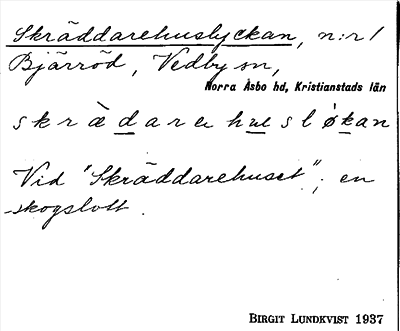 Skräddarehuslyckan, n:r 1
Bjärröd, Vedby sn,
Norra Åsbo hd, Kristianstads län
skrædarehusløkan
Vid "Skräddarehuset"; en
skogslott.
BIRGIT LUNDKVIST 1937